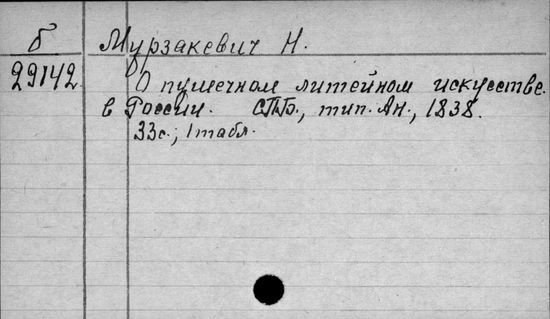 б
29142
Мурзакевич Н.
О пушечном литейном искусстве
в России. СПб., тип. Ан., 1838.
33с.; 1 табл.